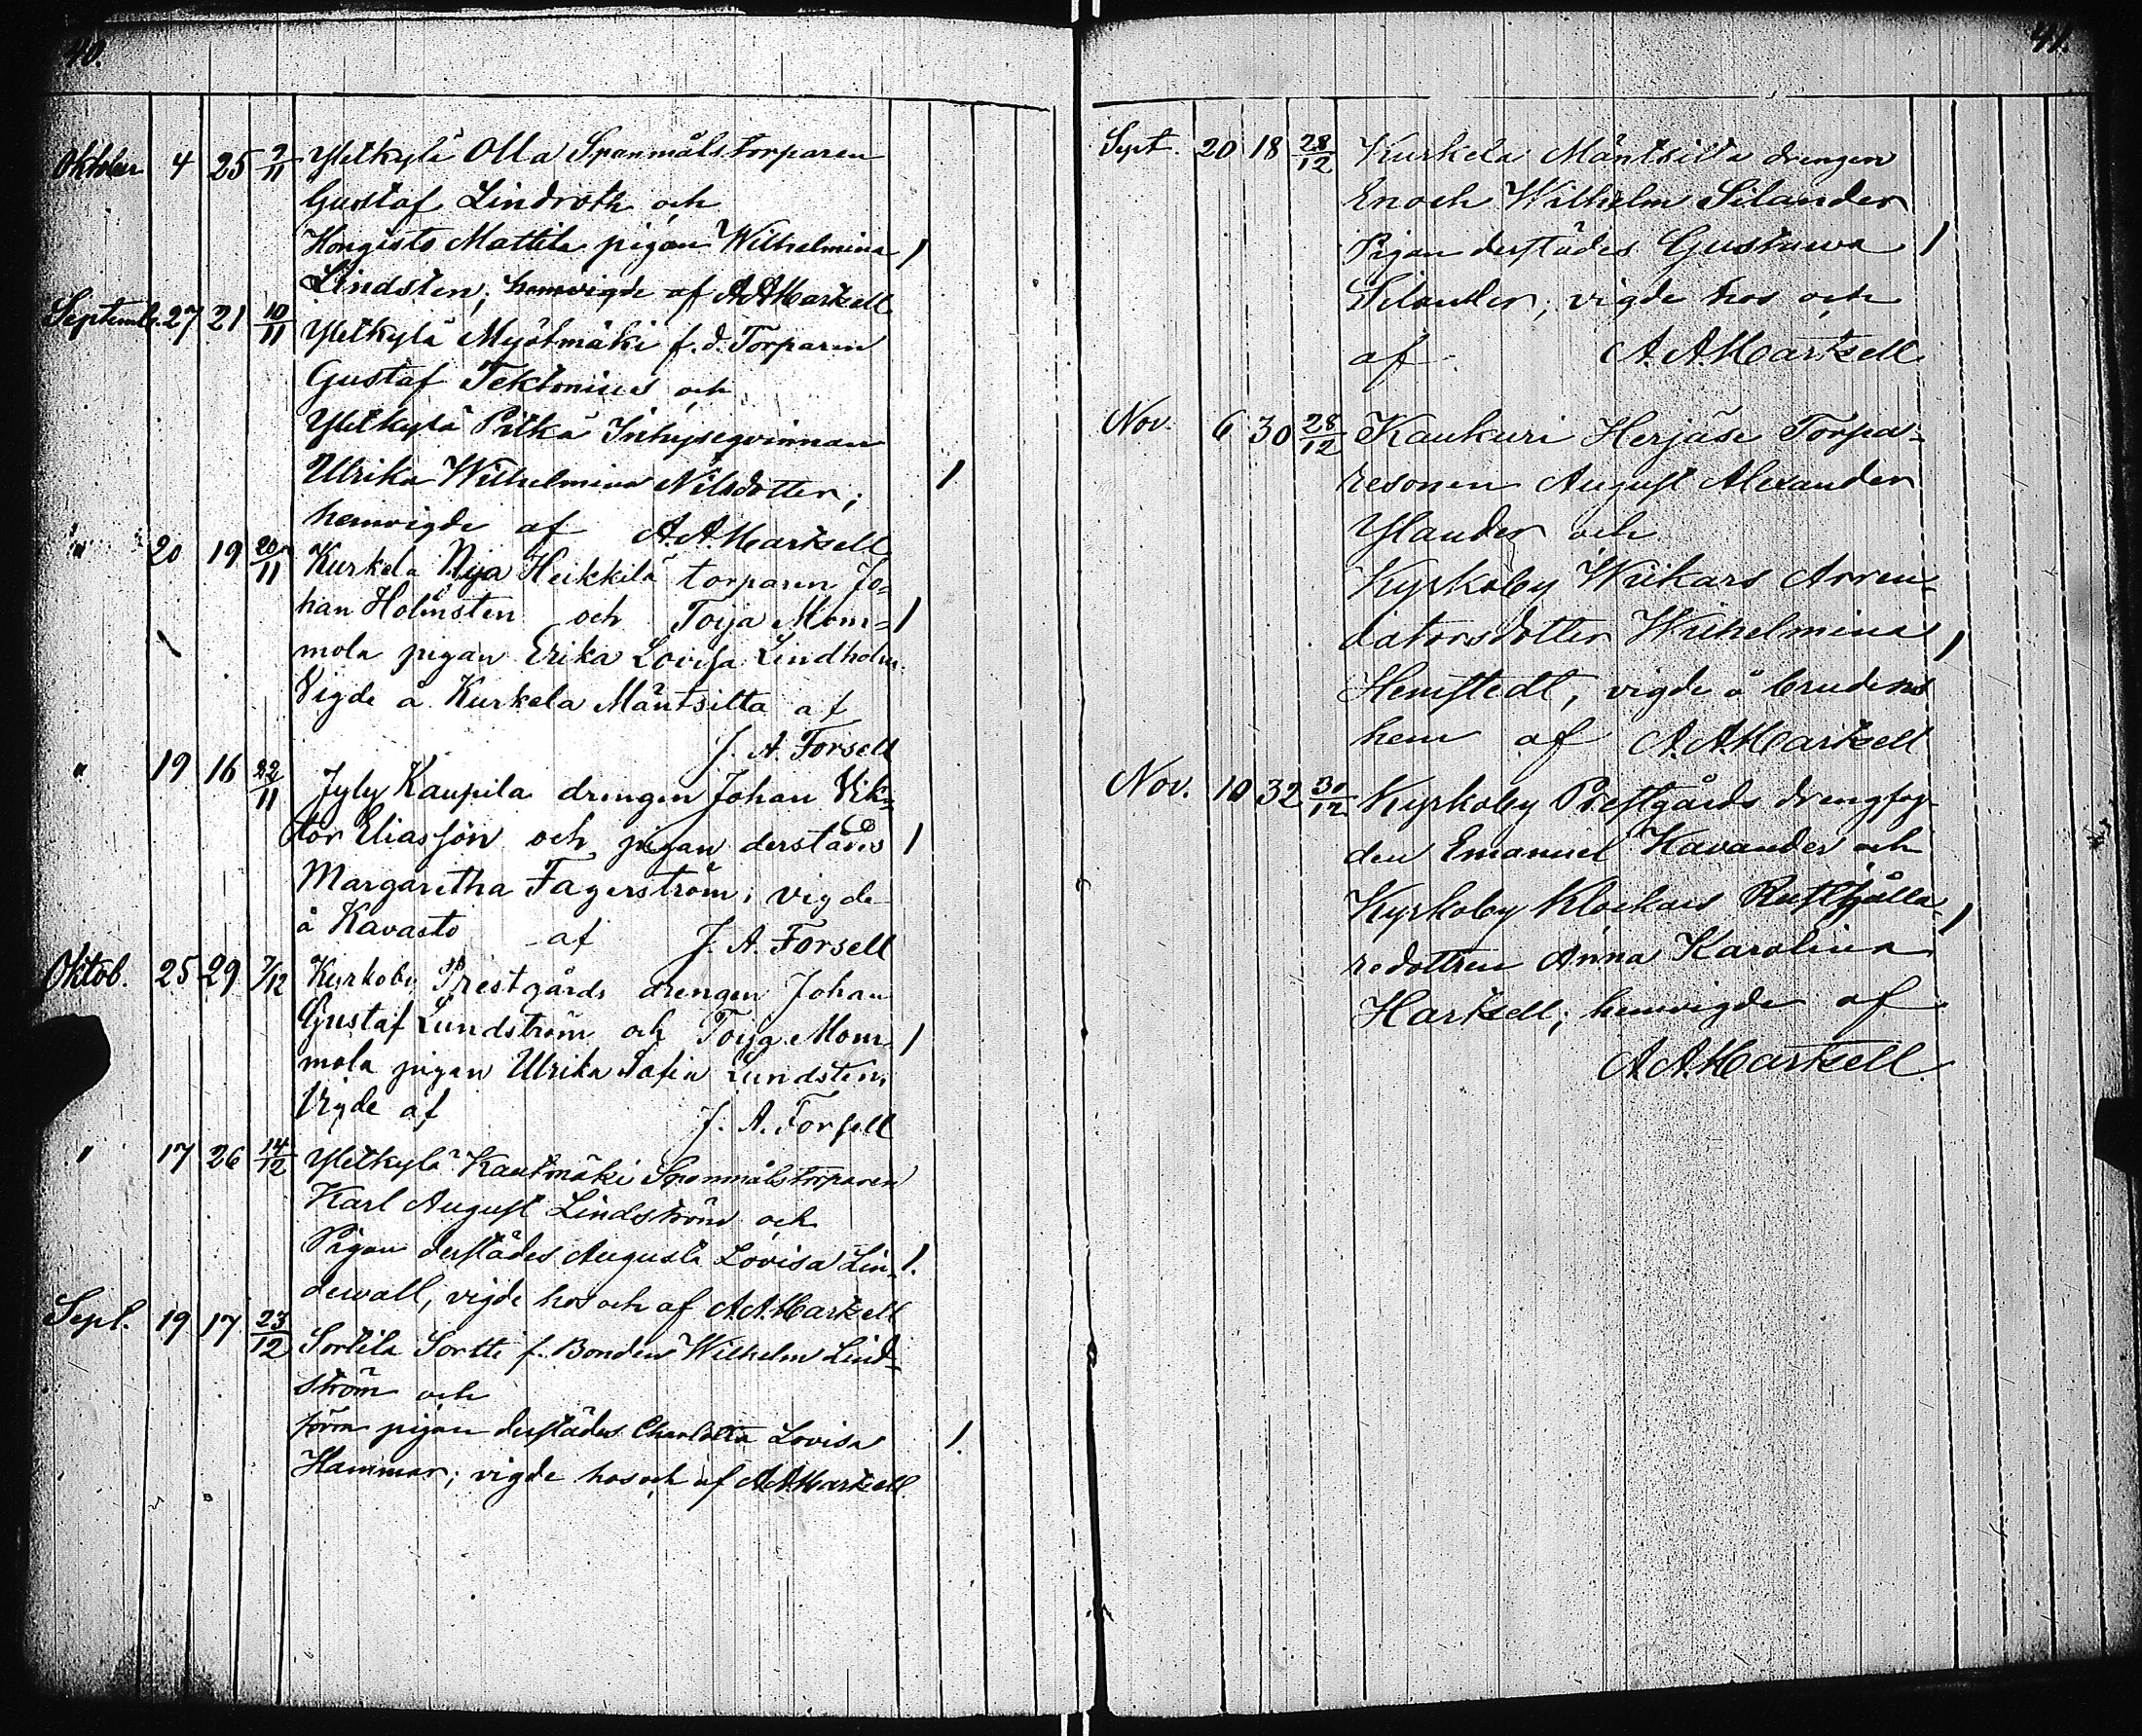 40.
Oktober 4 25 9/11 Yletkylä Olla Spanmålstorparen
Gustaf Lindroth och
Hongisto Mattila pigan Wilhelmina 1
Lindsten; hemvigde af A.A.Hartzell
Septemb. 27 21 10/11 Yletkylä Myötmäki f.d. Torparen
Gustaf Tektonius och
Yletkylä Pitkä Inhyseqvinnan
Ulrika Wilhelmina Nilsdotter; 1
hemvigde af A.A.Hartzell
" 20 19 20/11 Kurkela Nya Heikkilä torparen Jo-
han Holmsten och Toija Mom- 1
mola pigan Erika Lovisa Lindholm.
Vigde å Kurkela Mäntsilta af
J. A. Forsell
" 19 16 22/11 Jyly Kaupila drengen Johan Vik-
tor Eliasson och pigan derstädes 1
Margaretha Fagerström; vigde
å Kavasto af J. A. Forsell
Oktob. 25 29 7/12 Kyrkoby Prestgårds drengen Johan
Gustaf Lundström och Toija Mom- 1
mola pigan Ulrika Sofia Lundsten,
Vigde af J. A. Forsell
" 17 26 14/12 Yletkylä Kautmäki Spanmålstorparen
Karl August Lindström och
Pigan derstädes Augusta Lovisa Lin- 1.
dewall, vigde hos och af A.A.Hartzell
Sept. 19 17 23/12 Sortila Sortti f. Bonden Wilhelm Lind-
ström och
förra pigan derstädes Charlotta Lovisa 1.
Hammar; vigde hos och af A.A.Hartzell.
41.
Sept. 20 18 28/12 Kurkela Mäntsilta drengen
Enoch Wilhelm Silander
Pigan derstädes Gustawa 1
Silander; vigde hos och
af A.A.Hartzell
Nov. 6 30 28/12 Kaukuri Herjäse Torpa-
resonen August Alexander
Ylander och
Kyrkoby Wiikars Arren-
datorsdotter Wilhelmina 1
Hemstedt, vigde å brudens
hem af A.A.Hartzell
Nov. 10 32 30/12 Kyrkoby Prestgårds drengfog-
den Emanuel Kavander och
Kyrkoby Klockars Rusthålla- 1
redottren Anna Karolina
Hartzell; hemvigde af
A.A.Hartzell.